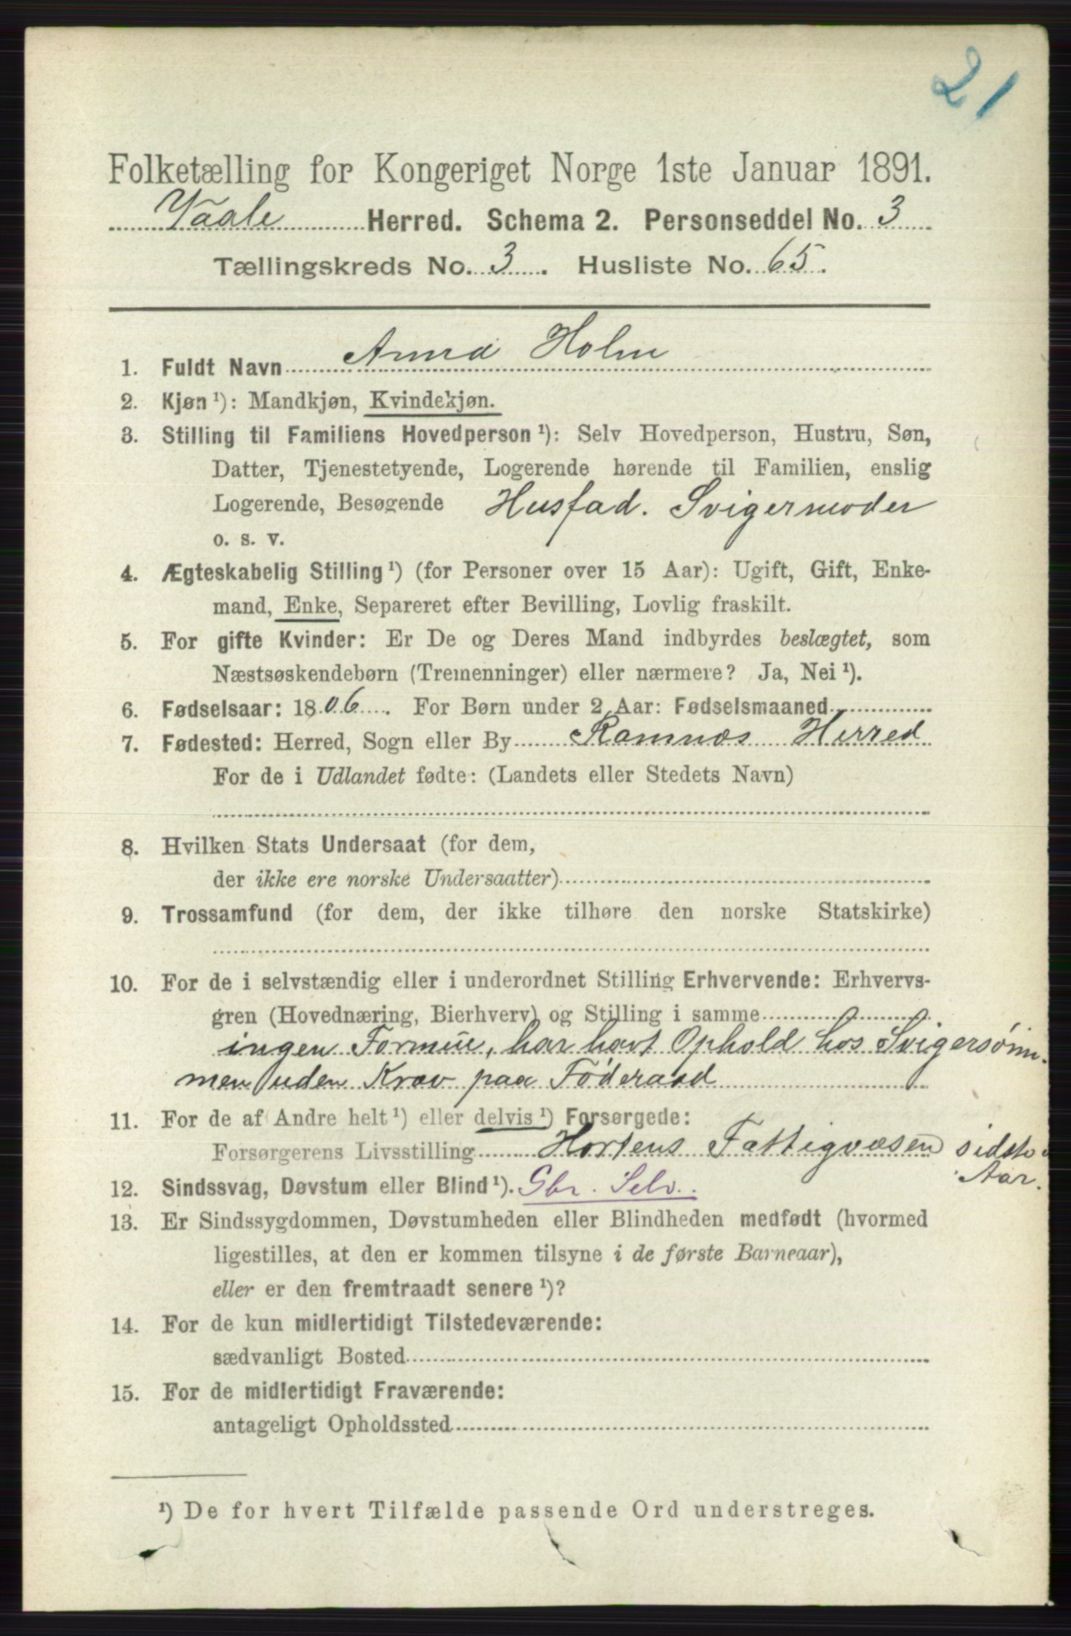 21
Folketælling for Kongeriget Norge 1ste Januar 1891.
Vaale Herred. Schema 2. Personseddel No. 3
Tællingskreds No. 3. Husliste No. 65.
1. Fuldt Navn Anna Holm
2. Kjøn ¹): Mandkjøn, Kvindekjøn.
3. Stilling til Familiens Hovedperson ¹): Selv Hovedperson, Hustru, Søn,
Datter, Tjenestetyende, Logerende hørende til Familien, enslig
Logerende, Besøgende Husfad. Svigermoder
o. s. v.
4. Ægteskabelig Stilling ¹) (for Personer over 15 Aar): Ugift, Gift, Enke-
mand, Enke, Separeret efter Bevilling, Lovlig fraskilt.
5. For gifte Kvinder: Er De og Deres Mand indbyrdes beslægtet, som
Næstsøskendebørn (Tremenninger) eller nærmere? Ja, Nei ¹).
6. Fødselsaar: 1806. For Børn under 2 Aar: Fødselsmaaned
7. Fødested: Herred, Sogn eller By Ramnæs Herred
For de i Udlandet fødte: (Landets eller Stedets Navn)
8. Hvilken Stats Undersaat (for dem,
der ikke ere norske Undersaatter)
9. Trossamfund (for dem, der ikke tilhøre den norske Statskirke)
10. For de i selvstændig eller i underordnet Stilling Erhvervende: Erhvervs-
gren (Hovednæring, Bierhverv) og Stilling i samme
ingen Formue, har havt Ophold hos Svigersøn-
men uden Krav paa Föderaad
11. For de af Andre helt ¹) eller delvis ¹) Forsørgede:
Forsørgerens Livsstilling Hortens Fattigvæsen sidste
Aar.
12. Sindssvag, Døvstum eller Blind ¹). Gbr. Selv.
13. Er Sindssygdommen, Døvstumheden eller Blindheden medfødt (hvormed
ligestilles, at den er kommen tilsyne i de første Barneaar),
eller er den fremtraadt senere ¹)?
14. For de kun midlertidigt Tilstedeværende:
sædvanligt Bosted
15. For de midlertidigt Fraværende:
antageligt Opholdssted
¹) De for hvert Tilfælde passende Ord understreges.